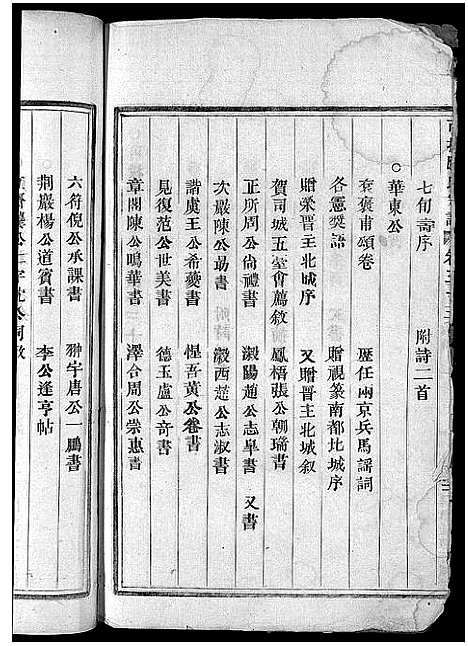 七旬壽序 附詩二首
○華東公
袞褒甫頌卷 歷任兩京兵馬謡詞
各憲獎語 贈視篆南都北城序
贈榮晋主北城序 又贈晋主北城叙
賀司城五室會薦敘 鳳梧張公朝瑞書
正所周公尙禮書 澱陽趙公志臯書 又書
次巖陳公勗書 瀫西楚公志淑書
諧虞王公希夔書 惺吾黃公卷書
見復范公世美書 德玉盧公奇書
章閣陳公鳴華書 澤台周公崇惠書
六符倪公承課書 翀宇唐公一鵬書
荆巖楊公道賓書 李公逢亨帖